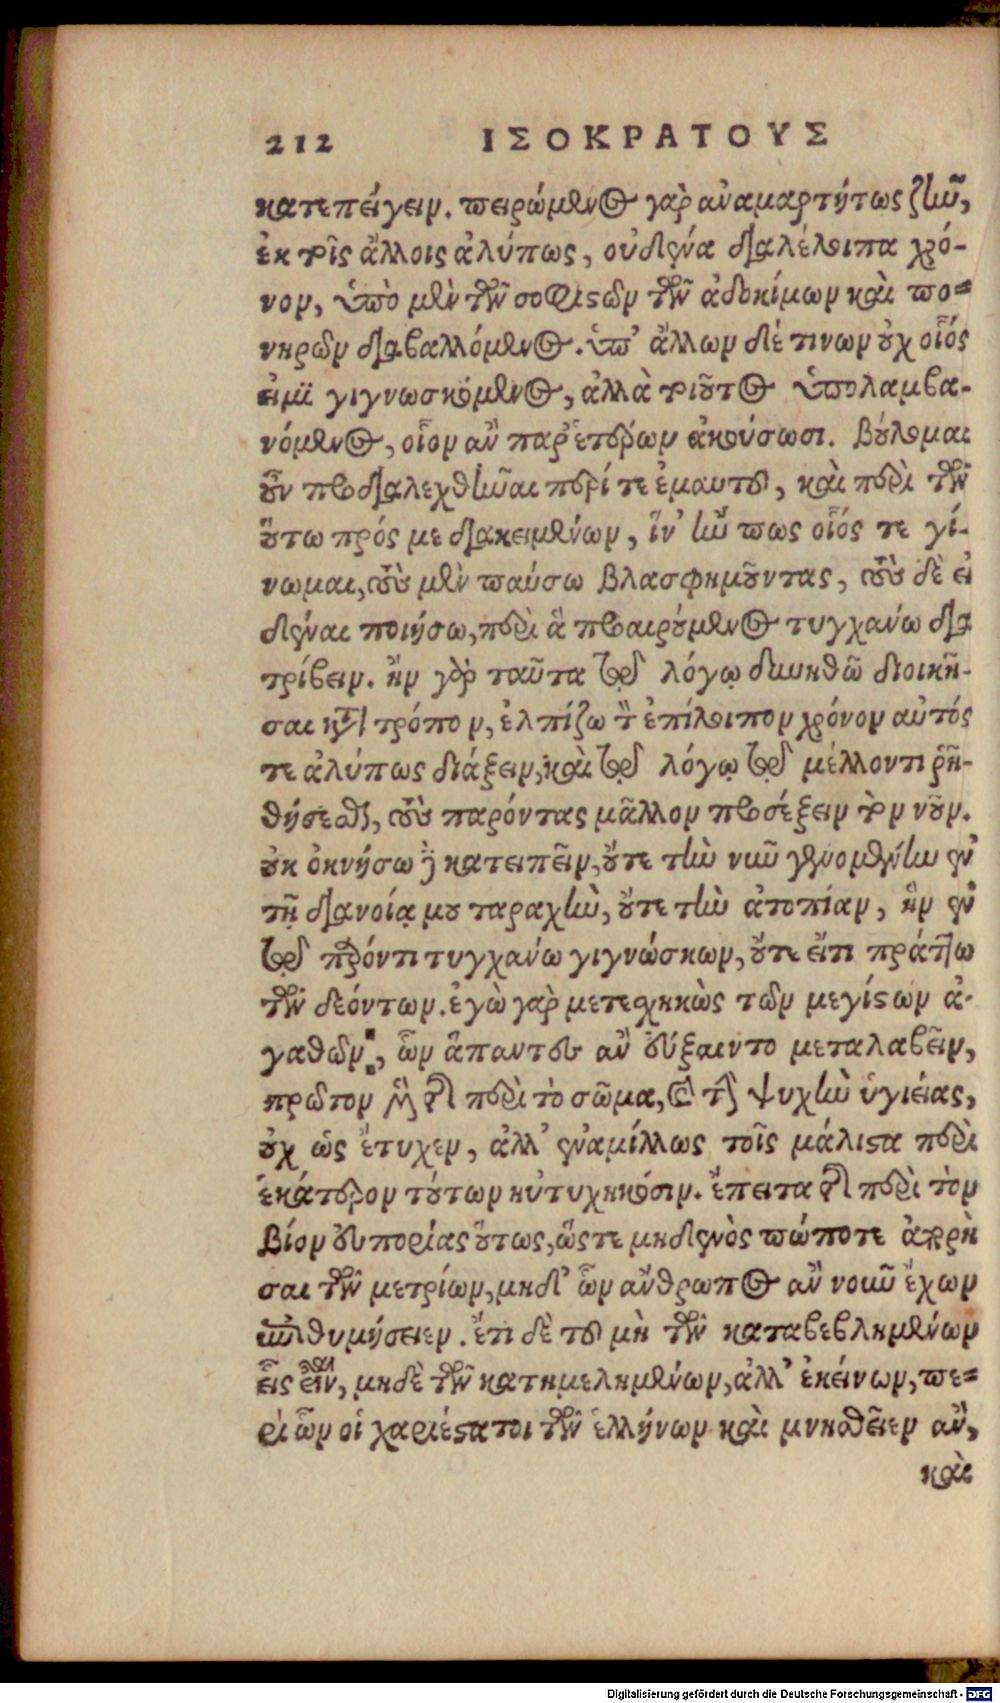 212 ΙΣΟΚΡΑΤΟΥΣ
κατεπείγειν. πειρώμενος γὰρ ἀναμαρτήτως ζῆν,
ἐκ τοῖς ἄλλοις ἀλύπως, οὐδένα διαλέλοιπα χρό-
νον, ὑπὸ μὲν τῶν σοφιστῶν τῶν ἀδοκίμων καὶ πο-
νηρῶν διαβαλλόμενος. ὑπ’ ἄλλων δέ τινων οὐχ οἷός
εἰμι γιγνωσκόμενος, ἀλλὰ τοιοῦτος ὑπολαμβα-
νόμενος, οἷον ἂν παρ’ ἑτέρων ἀκούσωσι. βούλομαι
οὖν προδιαλεχθῆναι περί τε ἐμαυτοῦ, καὶ περὶ τῶν
οὕτω πρός με διακειμένων, ἵν’ ἤν πως οἷός τε γί-
νωμαι, τοὺς μὲν παύσω βλασφημοῦντας, τοὺς δὲ εἰ
δέναι ποιήσω, περὶ ἃ προαιρούμενος τυγχάνω δια
τρίβειν. ἢν γὰρ ταῦτα τῷ λόγῳ δυνηθῶ διοικῆ-
σαι κατὰ τρόπον, ἐλπίζω τὸν ἐπίλοιπον χρόνον αὐτός
τε ἀλύπως διάξειν, καὶ τῷ λόγῳ τῷ μέλλοντι ῥη-
θήσεσθαι, τοὺς παρόντας μᾶλλον προσέξειν τὸν νοῦν.
οὐκ ὀκνήσω δὲ κατειπεῖν, οὔτε τὴν νῦν γενομένην ἐν
τῇ διανοίᾳ μου ταραχὴν, οὔτε τὴν ἀτοπίαν, ἣν ἐν
τῷ παρόντι τυγχάνω γιγνώσκων, οὔτε εἴ τι πράττω
τῶν δεόντων. ἐγὼ γὰρ μετεσχηκὼς τῶν μεγίστων ἀ-
γαθῶν, ὧν ἅπαντες ἂν εὔξαιντο μεταλαβεῖν,
πρῶτον μὲν τῆς περὶ τὸ σῶμα, καὶ τὴν ψυχὴν ὑγιείας,
οὐχ ὡς ἔτυχεν, ἀλλ’ ἐναμίλλως τοῖς μάλιστα περὶ
ἑκάτερον τούτων ηὐτυχηκόσιν. ἔπειτα τῆς περὶ τὸν
βίον εὐπορίας οὕτως, ὥς τε μηδενὸς πώποτε ἀπορῆ
σαι τῶν μετρίων, μηδ’ ὧν ἄνθρωπος ἂν νοῦν ἔχων
ἐπιθυμήσειεν. ἔτι δὲ τοῦ μὴ τῶν καταβεβλημένων
εἷς εἶναι, μηδὲ τῶν κατημελημένων, ἀλλ’ ἐκείνων, πε-
ρὶ ὧν οἱ χαριέστατοι τῶν ἑλλήνων καὶ μνησθεῖεν ἂν,
καὶ
Digitalisierung gefördert durch die Deutsche Forschungsgemeinschaft - DFG